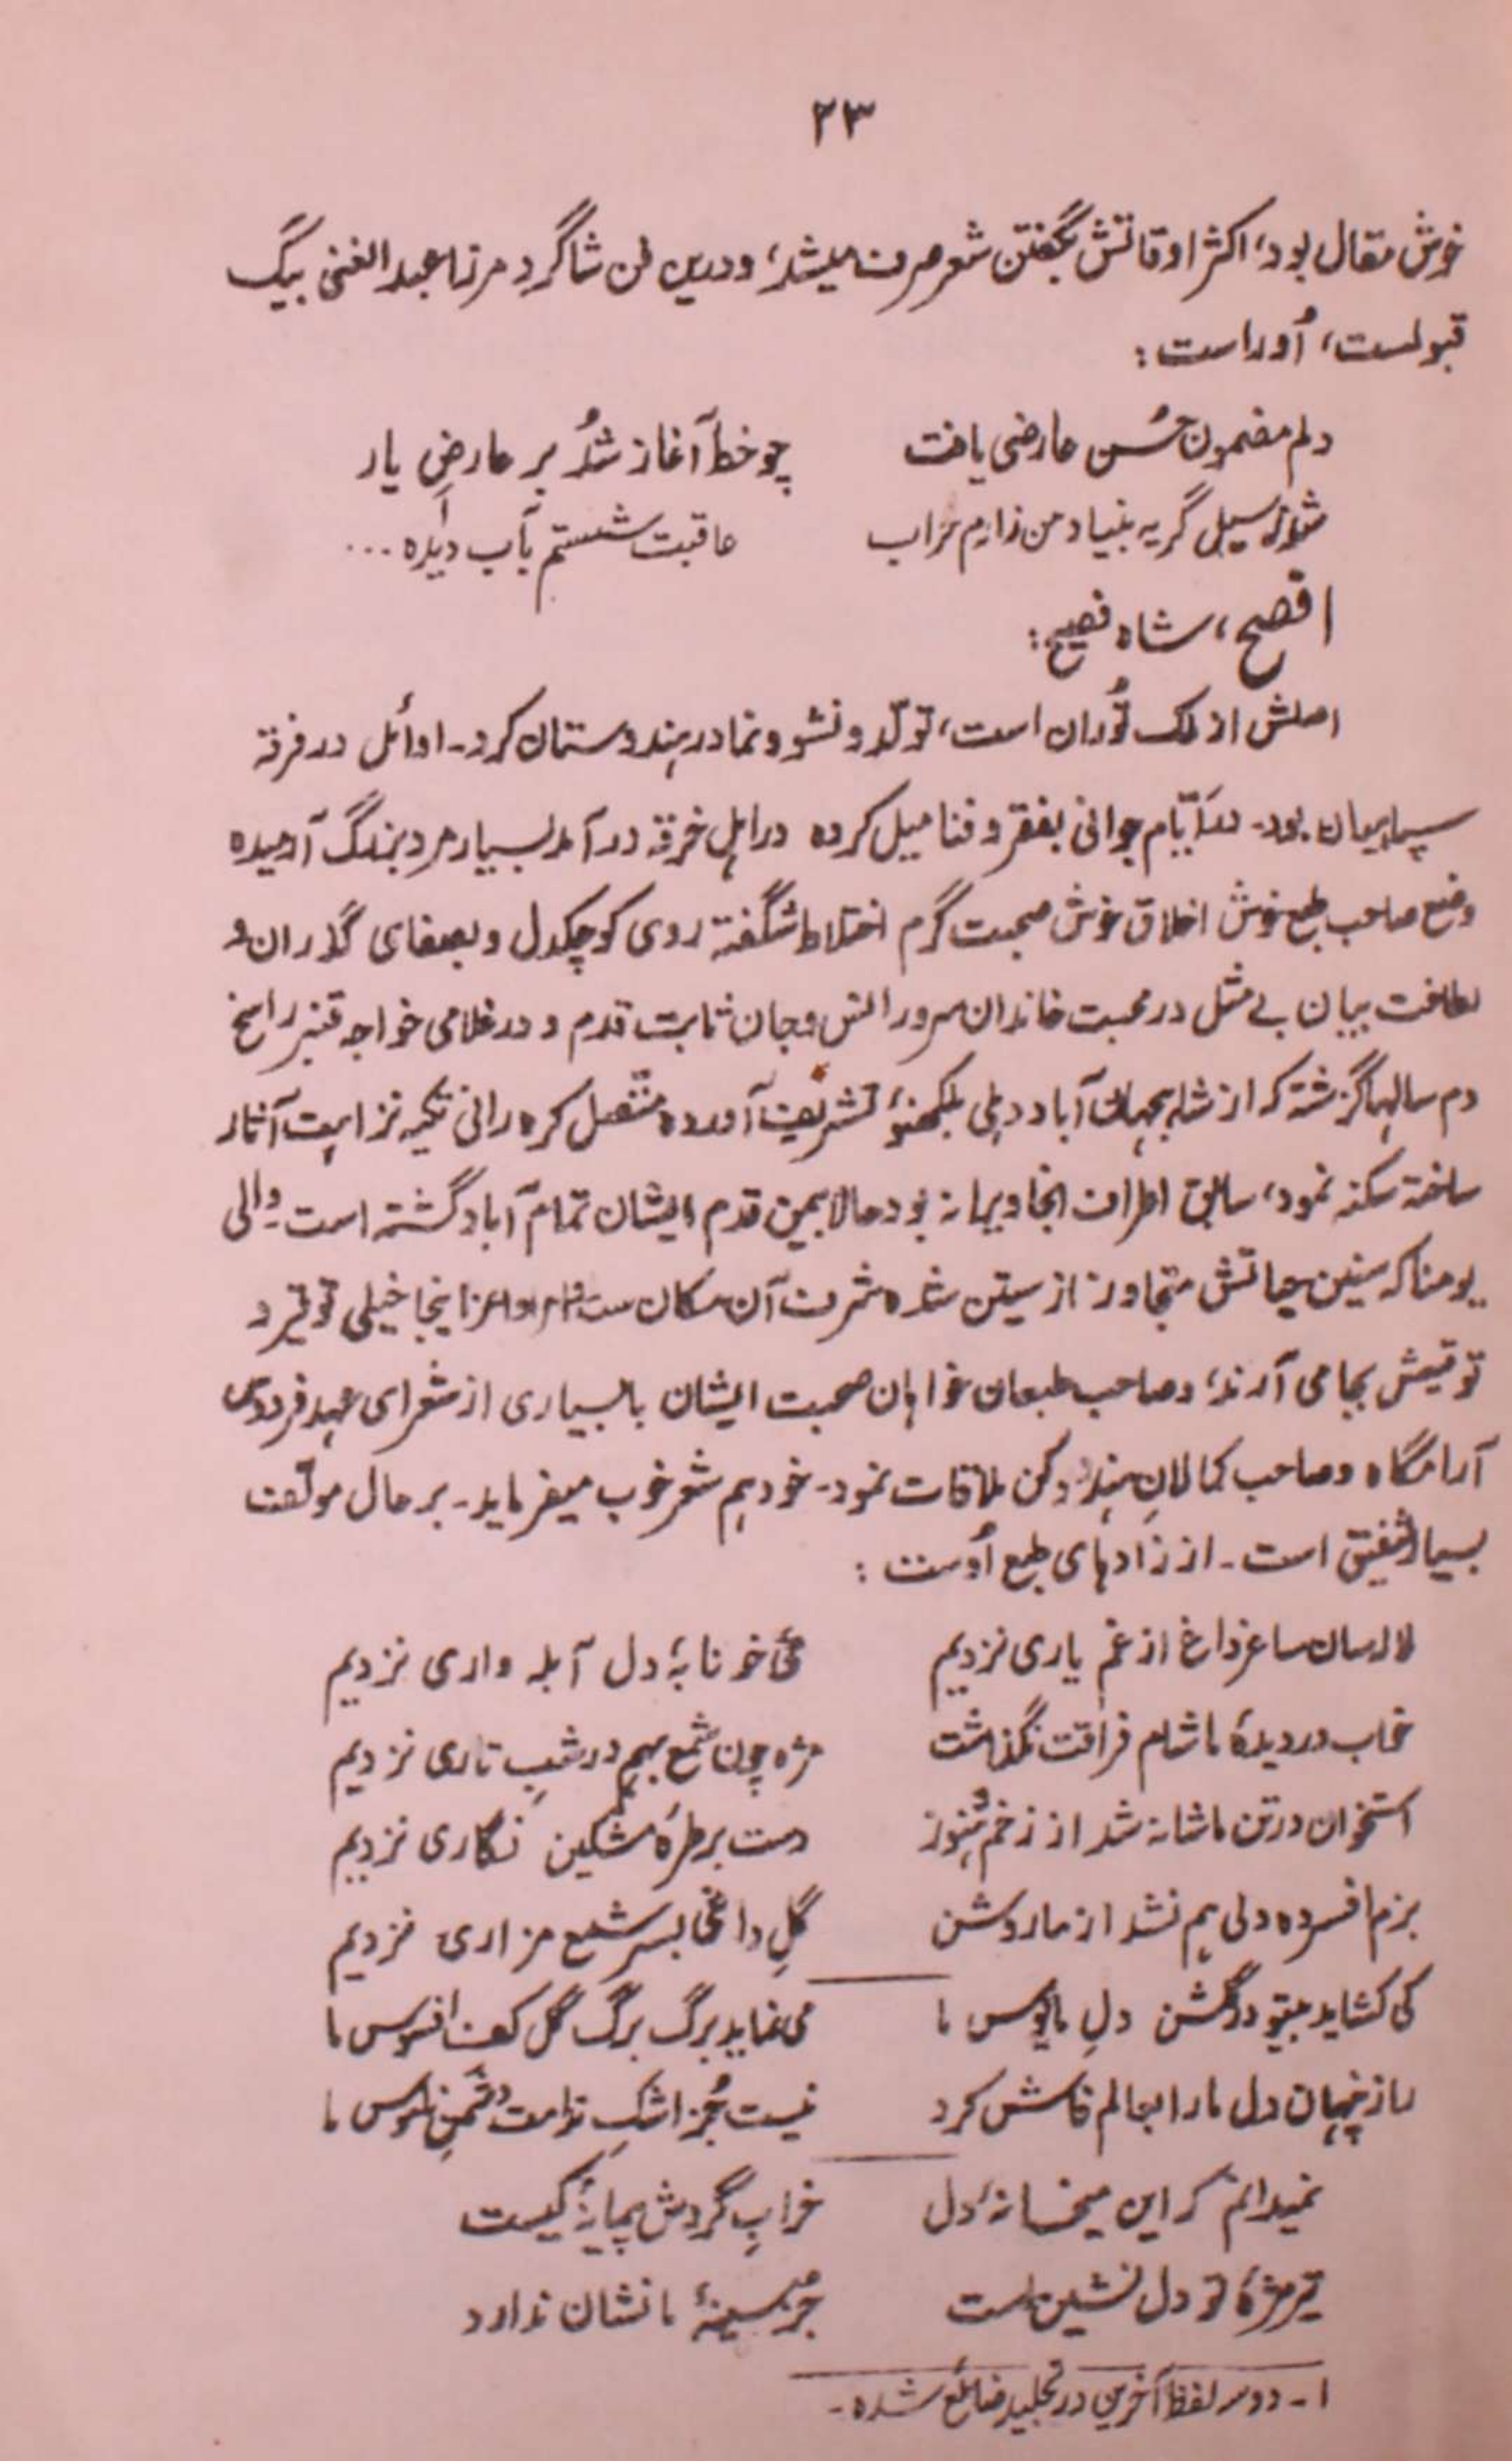 ۲۳
خوش مقال بود، اکثر اوقاتش بگفتن شعر صرف میشد، و درین فن شاگرد مرزا عبد الغنی بیگ
قبولست، اُوراست :
دلم مضمون حُسن عارضی یافت چو خط آغاز شُد بر عارضِ یار
شد از سیل گریه بنیاد من زارم خراب عاقبت شستم بآب دیده ...
افصح، شاه فصیح :
اصلش از ملک تُوران است، تولّد و نشو و نما در هندوستان کرد۔ اوائل در فرقهٔ
سپاهیان بود۔ در ایّام جوانی بفقر و فنا میل کرده در اهلِ خرقه در آمد بسیار مرد بزرگ آرمیده
وضع صاحب طبع خوش اخلاق خوش صحبت گرم اختلاط شگفته روی کوچکدل و بصفای گذران و
لطافت بیان بے مثل در محبت خاندان سرور انس و جان ثابت قدم و در غلامی خواجه قنبر راسخ
دم سالها گزشته که از شاهجهان آباد دهلی بلکهنؤ تشریف آورده متّصل کره رانی تکیه نزاهت آثار
ساخته سکنه نمود، سابق اطراف انجا ویرانه بود حالا بیمن قدم ایشان تمام آباد گشته است۔ والی
یومنا که سنین حیاتش متجاوز از ستین شده شرف آن مکان ست امراء و اعزا اینجا خیلی توقیر و
توقیعش بجا می آرند، و صاحب طبعان خواهان صحبت ایشان با بسیاری از شعرای عهد فردوس
آرامگاه و صاحب کمالانِ هند و دکن ملاقات نمود۔ خود هم شعر خوب میفرماید۔ بر حال مولّف
بسیار شفیق است۔ از زادهای طبع اُوست :
لاله‌سان ساغر داغ از غم یاری نزدیم مَیٔ خونابهٔ دل آبله واری نزدیم
خواب در دیدهٔ ما شام فراقت نگذاشت مژه چون شمع بهم در شبِ تاری نزدیم
استخوان در تن ما شانه شد از زخم و هنوز دست بر طرهٔ مشکین نگاری نزدیم
بزم افسرده دلی هم نشد از ما روشن گلِ داغی بسرِ شمع مزاری نزدیم
کی کشاید بیتو در گلشن دلِ مایوس ما می نماید برگ برگ گل کف افسوس ما
راز پنهان دل ما را بعالم فاش کرد نیست جُز اشکِ ندامت دشمنِ ناموس ما
نمیدانم که این میخانهٔ دل خرابِ گردش پیمانهٔ کیست
تیر مژهٔ تو دل نشین است جز سینهٔ ما نشان ندارد
۱ـ دو سه لفظ آخرین در تجلید ضائع شده۔